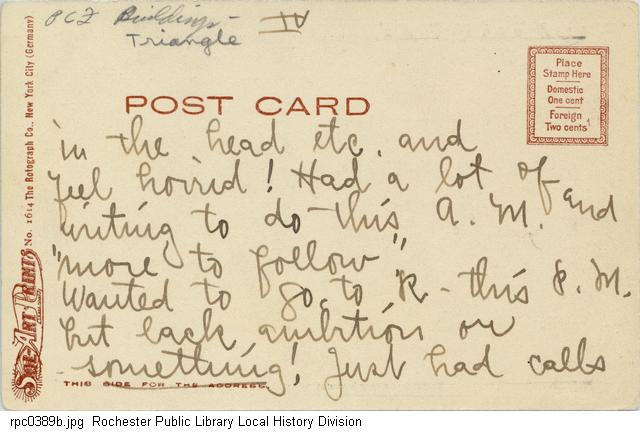 PCF Buildings -
Triangle
IV
POST CARD
Place
Stamp Here
Domestic
One cent
Foreign
Two cents
No. 1614 The Rotograph Co., New York City (Germany)
Sol-Art Prints
in the head etc. and
feel horrid! Had a lot of
writing to do this A. M. and
"more to follow"
Wanted to go to R - this P. M.
but lack ambition or
something! Just had calls
THIS SIDE FOR THE ADDRESS.
rpc0389b.jpg Rochester Public Library Local History Division